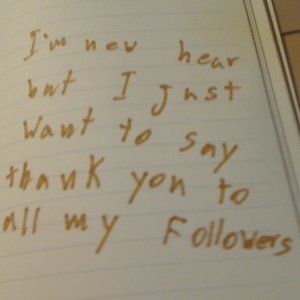 I'm new hear
but I just
Want to say
thank you to
all my Followers